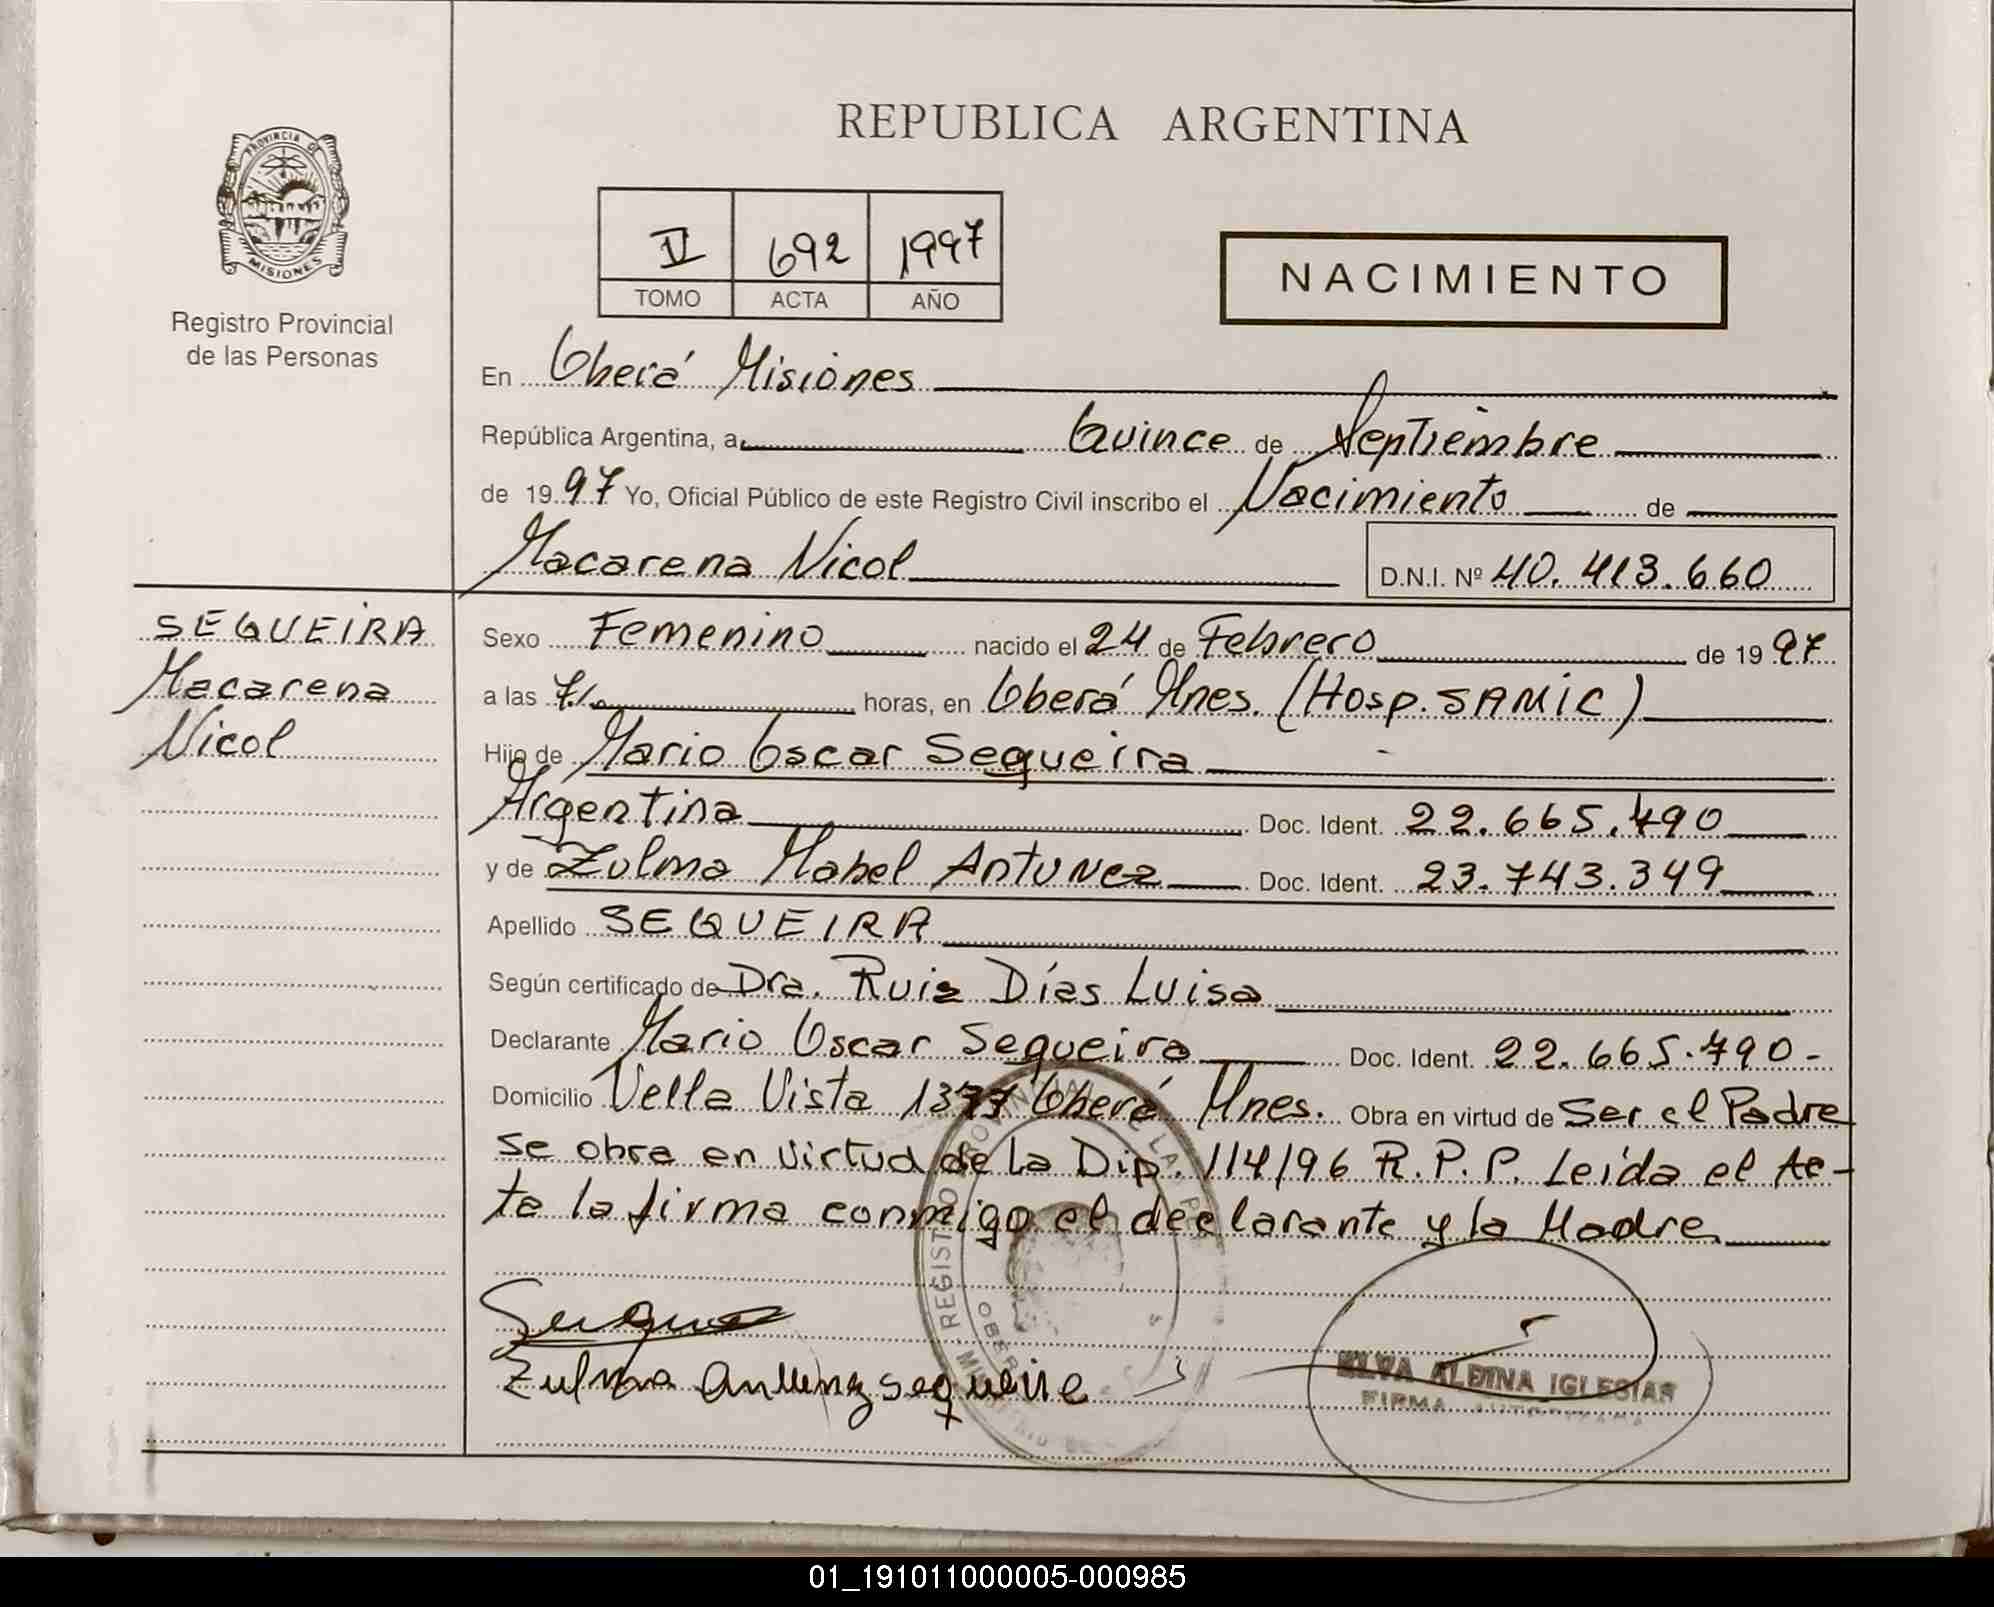 REPUBLICA ARGENTINA
PROVINCIA DE
MISIONES
Registro Provincial
de las Personas
II 692 1997
TOMO ACTA AÑO
NACIMIENTO
En Oberá Misiones
República Argentina, a Quince de Septiembre
de 1997 Yo, Oficial Público de este Registro Civil inscribo el Nacimiento de
Macarena Nicol D.N.I. Nº 40.413.660
SEQUEIRA
Macarena
Nicol
Sexo Femenino nacido el 24 de Febrero de 1997
a las 7/. horas, en Oberá Mnes. (Hosp. SAMIC)
Hijo de Mario Oscar Sequeira
Argentina Doc. Ident. 22.665.790
y de Zulma Mabel Antunez Doc. Ident. 23.743.349
Apellido SEQUEIRA
Según certificado de Dra. Ruiz Días Luisa
Declarante Mario Oscar Sequeira Doc. Ident. 22.665.790-
Domicilio Vella Vista Oberá Mnes. Obra en virtud de Ser el Padre
se obra en virtud de la Dip. 114/96 R.P.P. Leída el Ac-
ta la firma conmigo el declarante y la Madre
Zulma Antunez Sequeira
ELVA ALDINA IGLESIAS
FIRMA AUTORIZADA
01_191011000005-000985